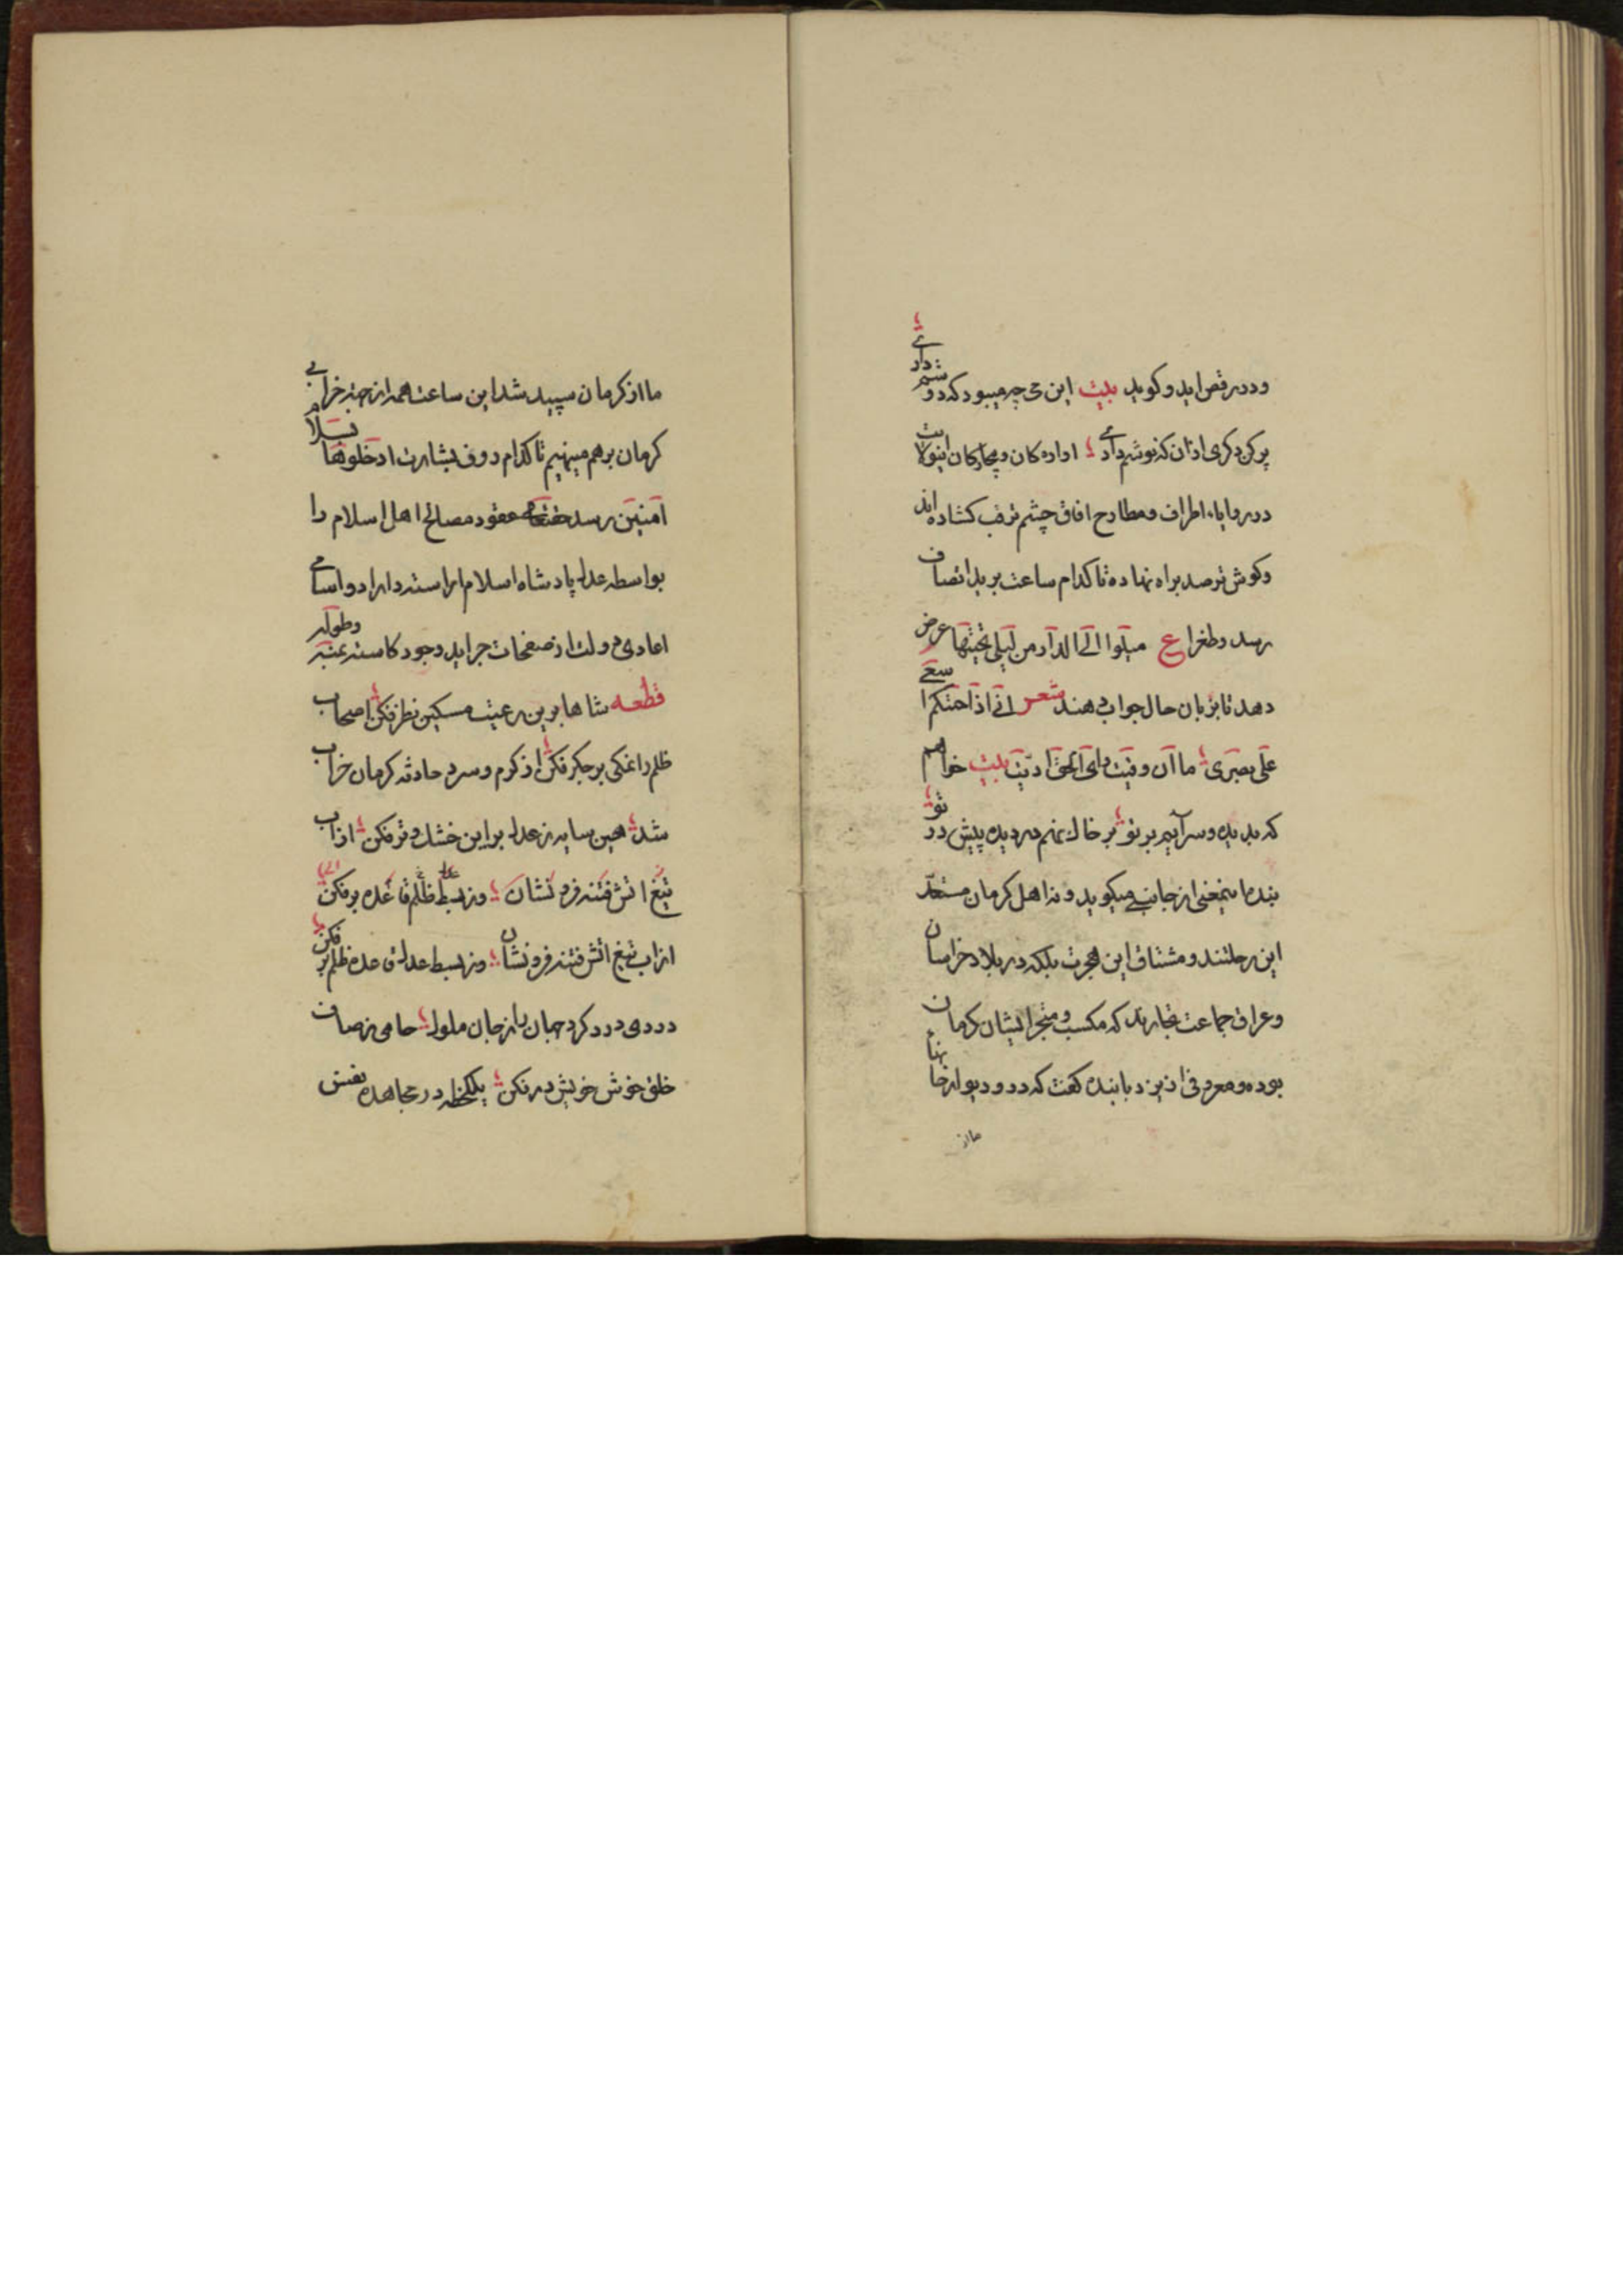 ودر رقص اید و کوید بیت این می چه میبود که دوشم دادی
پر کن دکری ازان که نوشم دادی اواره کان و بیچارکان اینولایت
در زوایاء اطراف و مطارح افاق چشم ترقب کشاده اند
و کوش ترصد براه نهاده تا کدام ساعت برید انصاف
رسد و طغراء ع میلوا الی الدار من لیلی نحییها عرض
دهد تا بزبان حال جواب دهند شعر انی اذا احتکم اسعی
علی بصری ما ان وفیت دای الحق ادیت بیت خواهم
که بدیده و سر آیم بر تو بر خاک نهم دو دیده پیش در تو
بنده اینمعنی از جانب میکوید و نه اهل کرمان مستعد
این رحلتند و مشتاق این هجرت بلکه در بلاد خراسان
و عراق جماعت تجارند که مکسب و متجر ایشان کرمان
بوده و معروفی از یزد با بنده کفت که در و دیوار خانهاء
ما از
ما از کرمان سپید شد این ساعت همه از جهت خرابی
کرمان برهم مینهیم تا کدام روز بشارت ادخلوها بسلام
آمنین رسد عقود مصالح اهل اسلام را
بواسطه عدل پادشاه اسلام اراسته داراد و اسامی
اعادی دولت از صفحات جراید وجود کاسته بمنه و طوله
قطعه شاها برین رعیت مسکین نظر فکن اصحاب
ظلم را نمکی بر جکر فکن از کرم و سرد حادثه کرمان خراب
شد هین سایه ز عدل بر این خشک و تر فکن از اب
تیغ اتش فتنه فرو نشان وز بسط ظلم قاعده بر فکن
از اب تیغ اتش فتنه فرو نشان وز بسط عدل قاعده ظلم بر فکن
دردی درد کرد جهان را ز جان ملول جامی ز صاف
خلق خوش خویش در فکن یکلحظه در مجاهده نفس